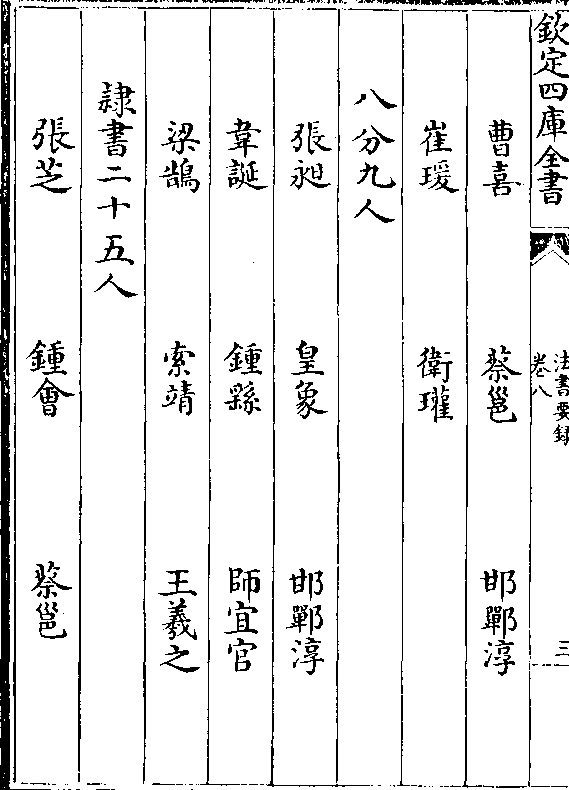 欽定四庫全書
法書要録
卷八
三
曹喜 蔡邕 邯鄲淳
崔瑗 衛瓘
八分九人
張昶 皇象 邯鄲淳
韋誕 鍾繇 師宜官
梁鵠 索靖 王羲之
隷書二十五人
張芝 鍾會 蔡邕